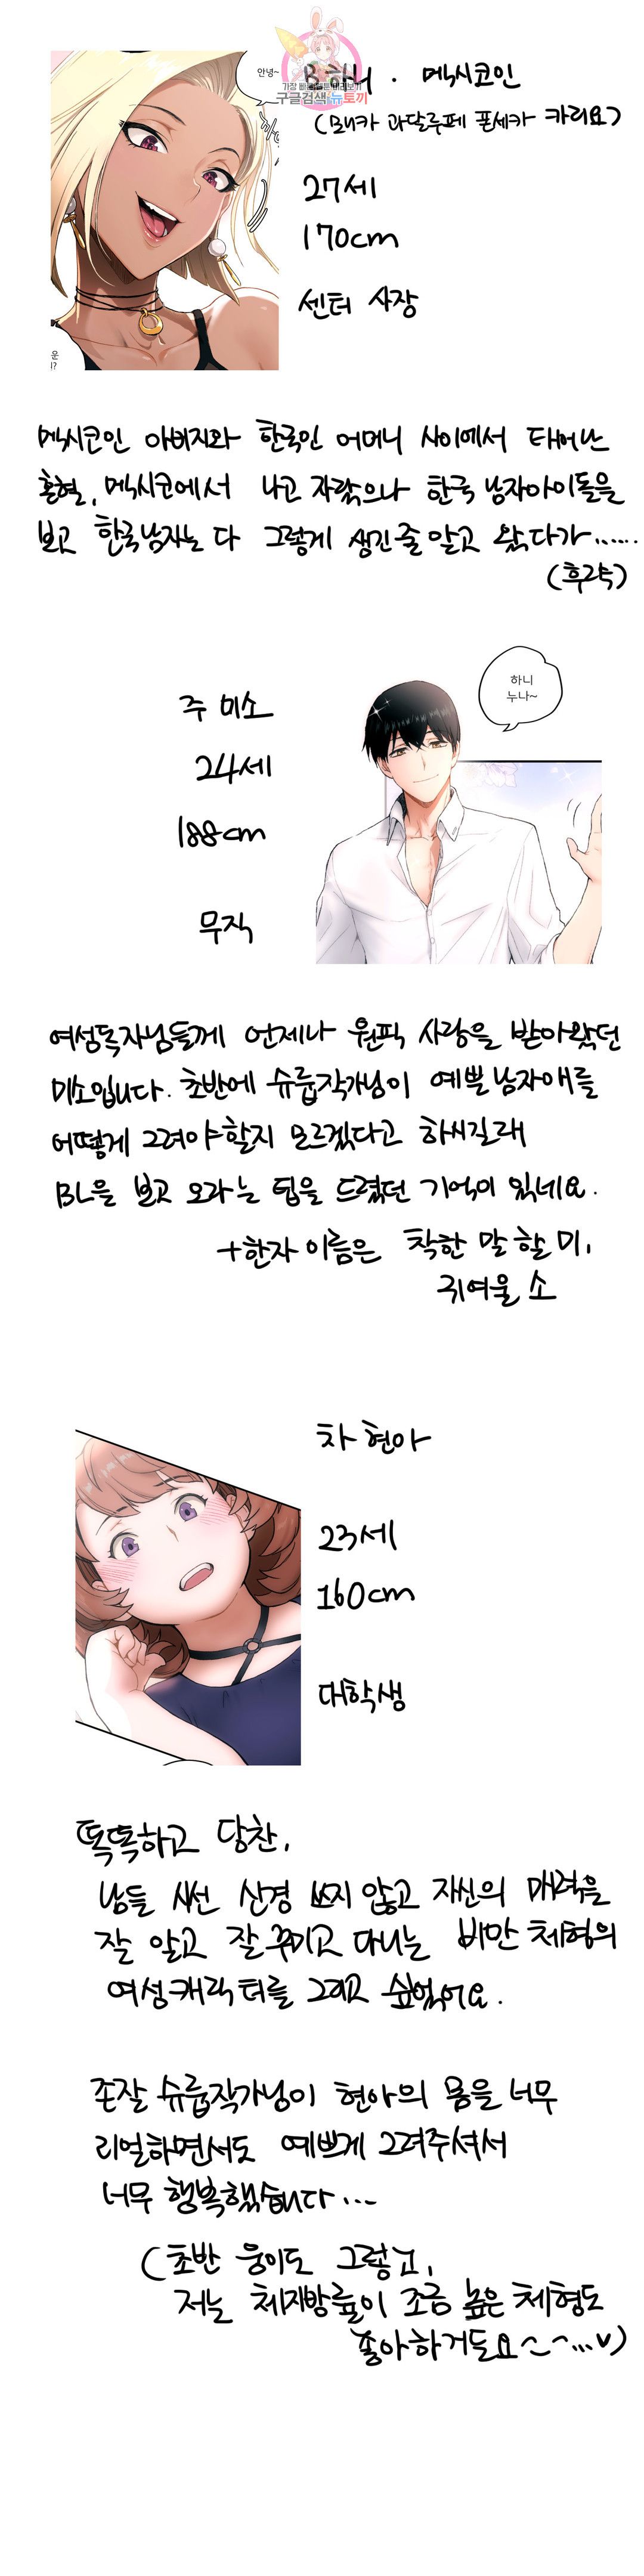 안녕~
B·하니 · 멕시코인
가장 빠른 웹툰 미리보기
구글검색 뉴토끼
과달루페 폰세카 카리요)
27세
170cm
센터 사장
운
!?
멕시코인 아버지와 한국인 어머니 사이에서 태어난
혼혈, 멕시코에서 나고 자랐으나 한국 남자아이돌을
보고 한국남자는 다 그렇게 생긴줄 알고 왔다가......
(후략)
하니
누나~
주 미소
24세
188cm
무직
여성독자님들께 언제나 원픽 사랑을 받아왔던
미소입니다. 초반에 슈룹작가님이 예쁜 남자애를
어떻게 그려야할지 모르겠다고 하시길래
BL을 보고 오라는 팁을 드렸던 기억이 있네요.
+한자 이름은 착한 말 할 미,
귀여울 소
차 현아
23세
160cm
대학생
똑똑하고 당찬,
남들 시선 신경 쓰지 않고 자신의 매력을
잘 알고 잘 꾸미고 다니는 비만 체형의
여성캐릭터를 그리고 싶었어요.
존잘 슈룹작가님이 현아의 몸을 너무
리얼하면서도 예쁘게 그려주셔서
너무 행복했습니다...
(초반 웅이도 그렇고,
저는 체지방률이 조금 높은 체형도
좋아하거든요^_^...♥)